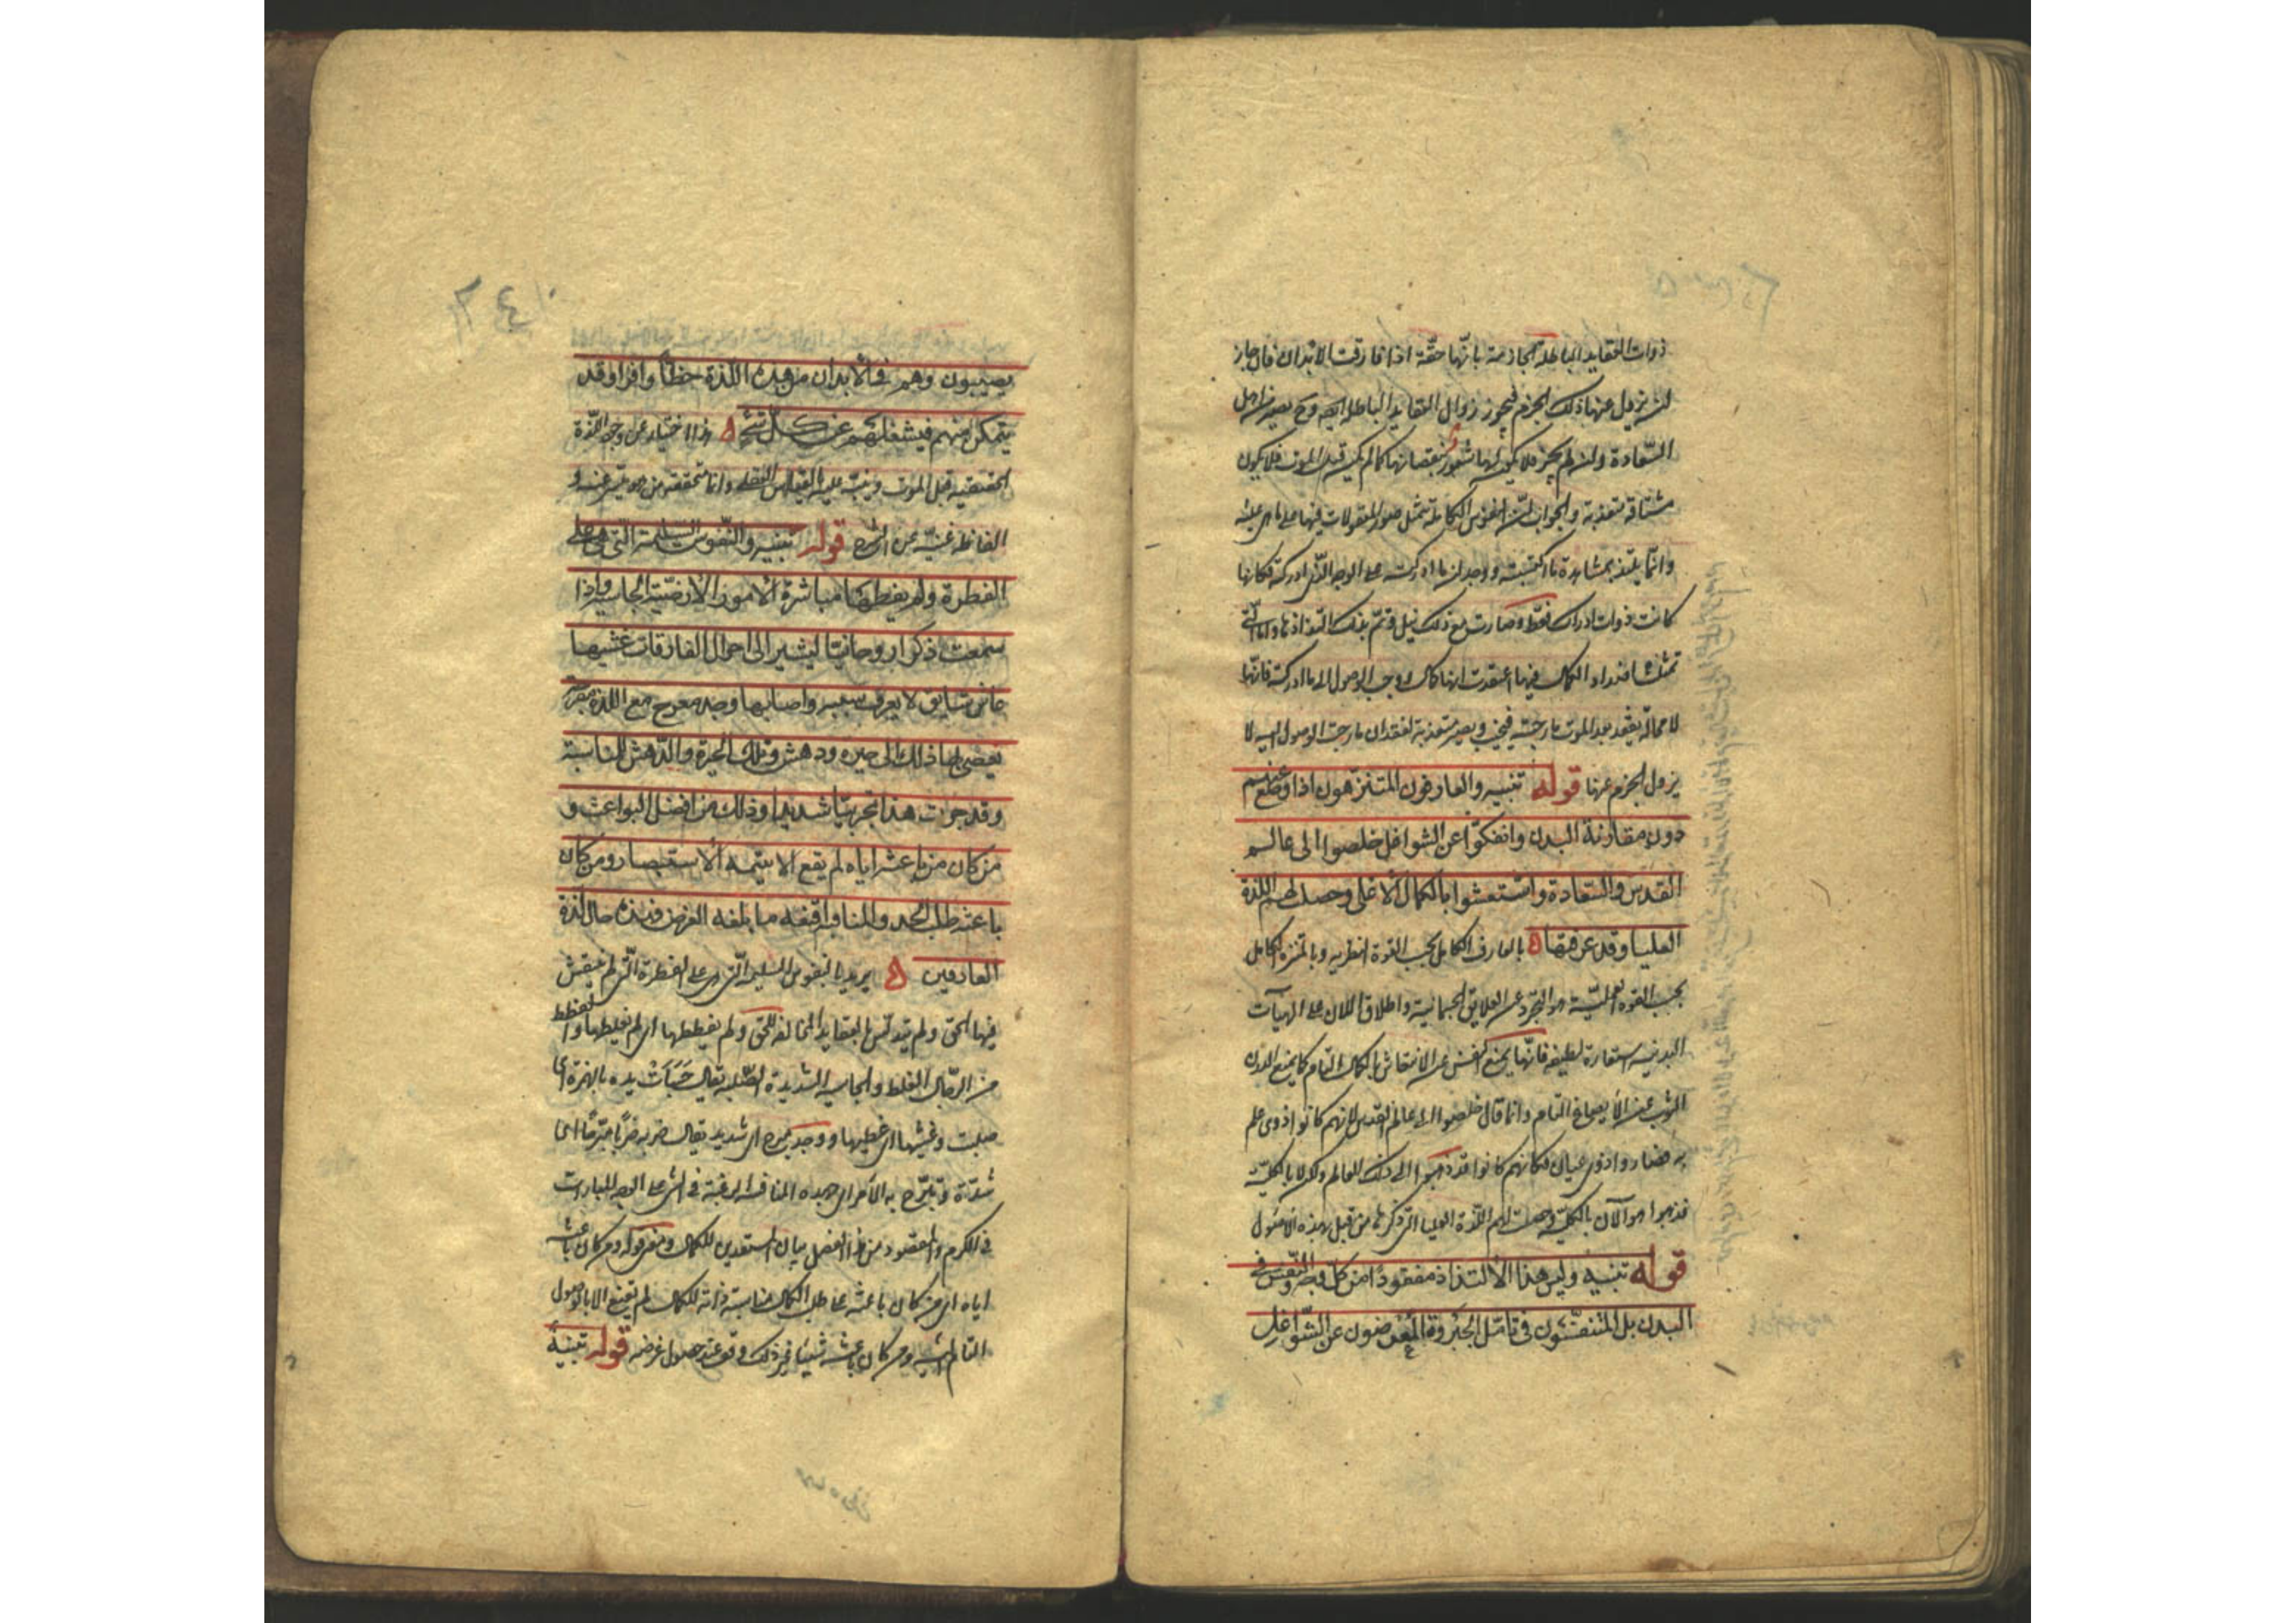 ذوات العقايد الباطلة الجازمة بانها حقة اذا فارقت الابدان فان جاز
ان يزول عنها ذلك الجزم فيجوز زوال العقايد الباطلة ايضا وح يصير من اهل
السعادة وان لم يجز فلا يكون لها شعور بنقصانها كما لم يكن قبل الموت فلا يكون
مشتاقة متعذبة والجواب ان النفوس الكاملة تتمثل صور المعقولات فيها على ما هى عليه
وانما يلتذ بمشاهدة ما اكتسبته ووجدان ما ادركته على الوجه الذى ادركته فكانها
كانت ذوات ادراك فقط وصارت مع ذلك ذات نيل وتم بذلك التذاذها واما التى
تمثلت اضداد الكمال فيها اعتقدت انها كمال ورجت الوصول الى ما ادركته فانها
لا محالة يفقد بعد الموت ما رجته فيخيب ويصير متعذبة لفقدان ما رجت الوصول اليه لا
يزول الجزم عنها قوله تنبيه والعارفون المتنزهون اذا وضع عنهم
دون مقارنة البدن وانفكوا عن الشواغل خلصوا الى عالم
القدس والسعادة وانتعشوا بالكمال الاعلى وحصلت لهم اللذة
العليا وقد عرفتها بالعارف الكامل بحسب القوة النظرية وبالمتنزه الكامل
بحسب القوة العملية هو التجرد عن العلايق الجسمانية واطلاق الدرن على الهيآت
البدنية استعارة لطيفة فانها يمنع النفس عن الانتقاش بالكمال التام كما يمنع الدرن
الثوب عن الانصباغ التام وانما قال خلصوا الى عالم القدس لانهم كانوا ذوى علم
به فصاروا ذوى عيان فكانهم كانوا قد ذهبوا الى ذلك العالم ولكن لا بالكلية
فذهبوا هو الآن بالكلية وحصلت لهم اللذة العليا التى ذكرها من قبل بهذه الاصول
قوله تنبيه وليس هذا الالتذاذ مفقودا من كل وجه والنفس فى
البدن بل المنغمسون فى تامل الجبروت المعرضون عن الشواغل
يصيبون وهم فى الابدان من هذه اللذة حظا وافرا قد
يتمكن منهم فيشغلهم عن كل شئ هذا اخبار عن وجود اللذة
الحقيقية قبل الموت وينبه عليه بالقياس العقلى وانما يتحققه من هو ميسر عنه و
الفاظه غنية عن الشرح قوله تنبيه والنفوس السليمة التى هى على
الفطرة ولم يفظظها مباشرة الامور الارضية الجاسية اذا
سمعت ذكرا روحانيا يشير الى احوال المفارقات غشيها
غاش شايق لا يعرف سببه واصابها وجد مبرح مع لذة مفرحة
يفضى بها ذلك الى حيرة ودهش وذلك للمناسبة
وقد جرب هذا تجريبا شديدا وذلك من افضل البواعث و
من كان من باعثه اياه لم يقنع الا بتتمة الاستبصار ومن كان
باعثه طلب الحمد والمنافسة اقنعه ما بلغه الغرض فهذه حال لذة
العارفين يريد بالنفوس السليمة التى هى على الفطرة التى لم ينقش
فيها الحق ولم يتدنس بالعقايد المخالفة للحق ولم يفظظها اى لم يغلظها والفظ
من الرجال الغليظ والجاسية الشديدة الصلبة يقال جسات يده بالهمزة اى
صلبت وغشيها اى غطيها ووجد مبرح اى شديد يقال ضربه ضربا مبرحا اى
شدة وتبرح به الامر اى جهده المنافسة الرغبة فى الشئ على الوجه المباراة
فى الكرم والمقصود من هذا الفصل بيان المستعدين للكمال ومعنى قوله ومن كان باعثه
اياه اى من كان باعثه على طلب الكمال مناسبة ذاته للكمال لم يقنع الا بالوصول
التام اليه ومن كان باعثه شيئا غير ذلك وقف عند حصول غرضه قوله تنبيه